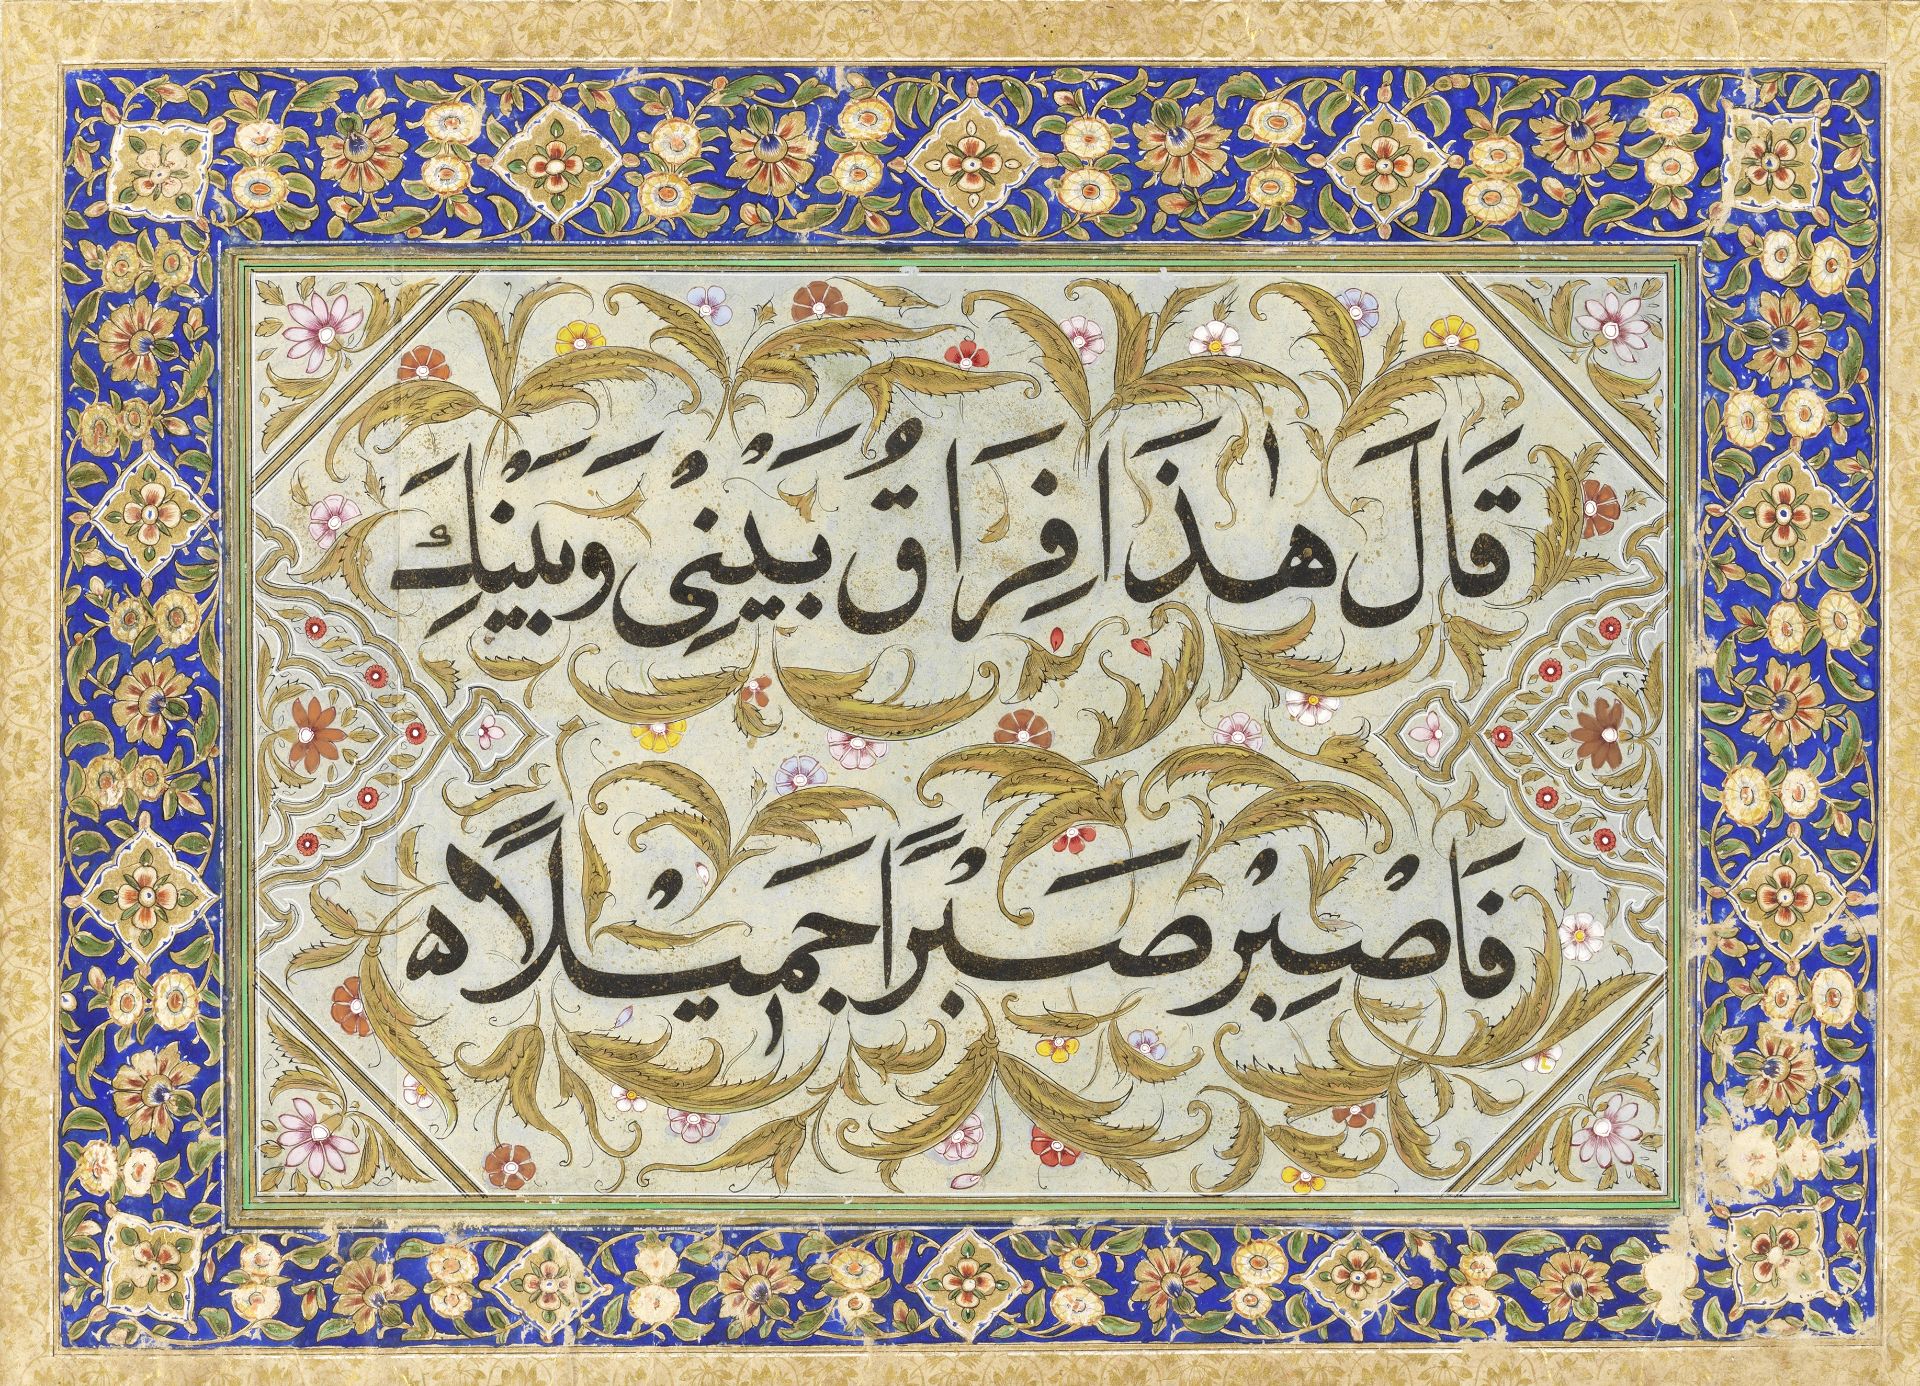 قَالَ هٰذَا فِرَاقُ بَيْنِىْ وَبَيْنِكَ
فَاصْبِرْ صَبْرًا جَمِيْلًا ه